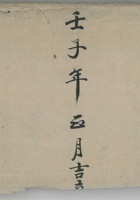 壬子年正月吉